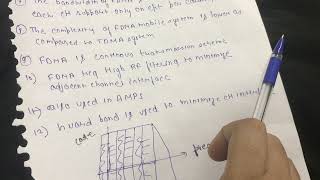 The bandwidth of FDMA
each CH support only on ckt per
9) The complexity of FDMA mobile system is lower as
compared to TDMA system
9) FDMA is continous transmission scheme
10) FDMA req. High RF filtering to minimize
adjacent channel interface
11) also used in AMPS
12) Guard band is used to minimize CH
code
freq